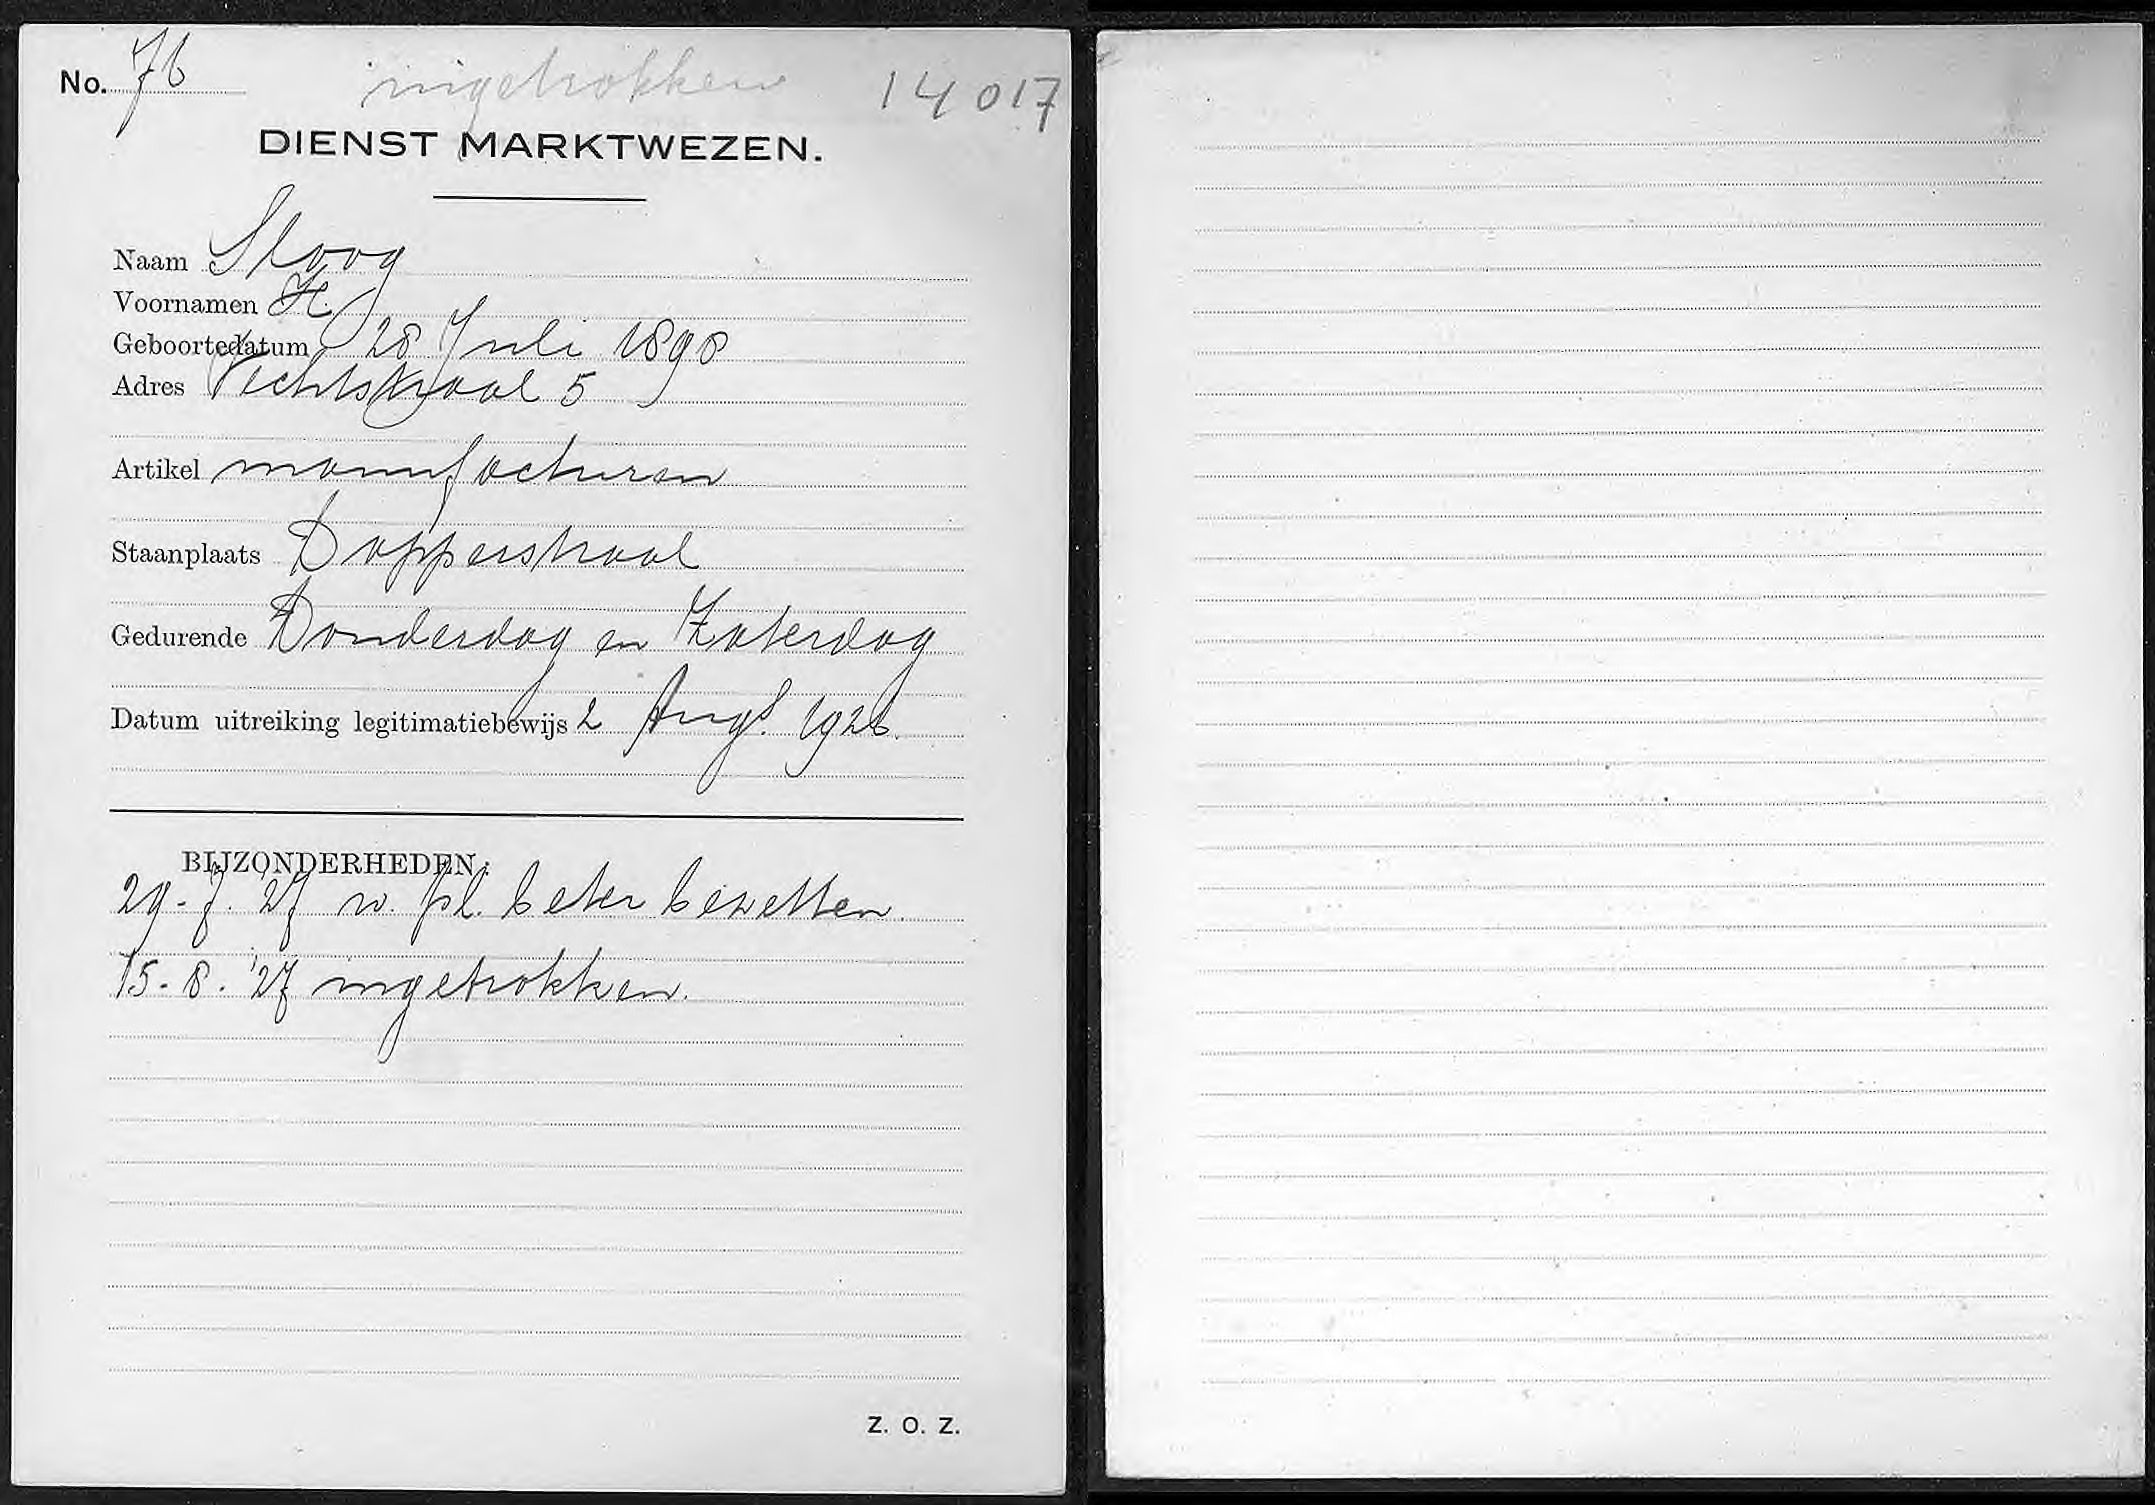 No. 76 ingetrokken 14017
DIENST MARKTWEZEN.
Naam Sloog
Voornamen H.
Geboortedatum 28 Juli 1898
Adres Vechtstraat 5
Artikel manufacturen
Staanplaats Dapperstraat
Gedurende Donderdag en Zaterdag
Datum uitreiking legitimatiebewijs 2 Augs. 1926.
BIJZONDERHEDEN:
29-7.'27 w. pl. beter bezetten.
15-8.'27 ingetrokken.
Z. O. Z.